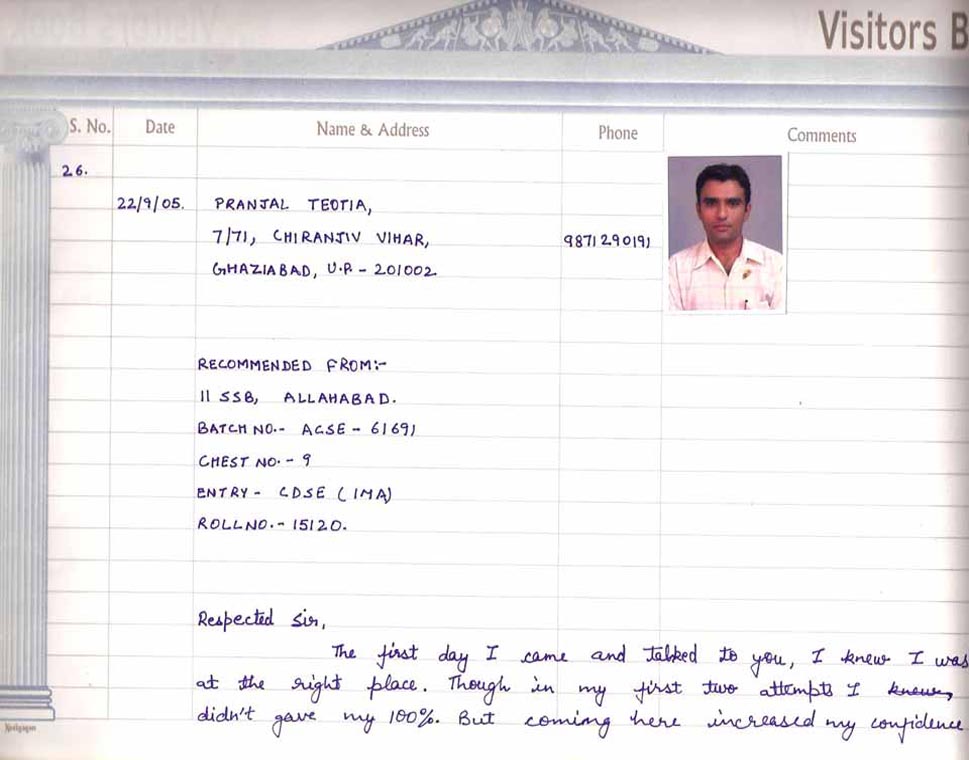 Visitors B
S. No. Date Name & Address Phone Comments
26.
22/9/05. PRANJAL TEOTIA,
7/71, CHIRANJIV VIHAR, 9871290191
GHAZIABAD, U.P. - 201002
RECOMMENDED FROM:-
11 SSB, ALLAHABAD.
BATCH NO.- ACSE - 61691
CHEST NO. - 9
ENTRY - CDSE (IMA)
ROLL NO. - 15120.
Respected Sir,
The first day I came and talked to you, I knew I was
at the right place. Though in my first two attempts I knew,
didn't gave my 100%. But coming here increased my confidence